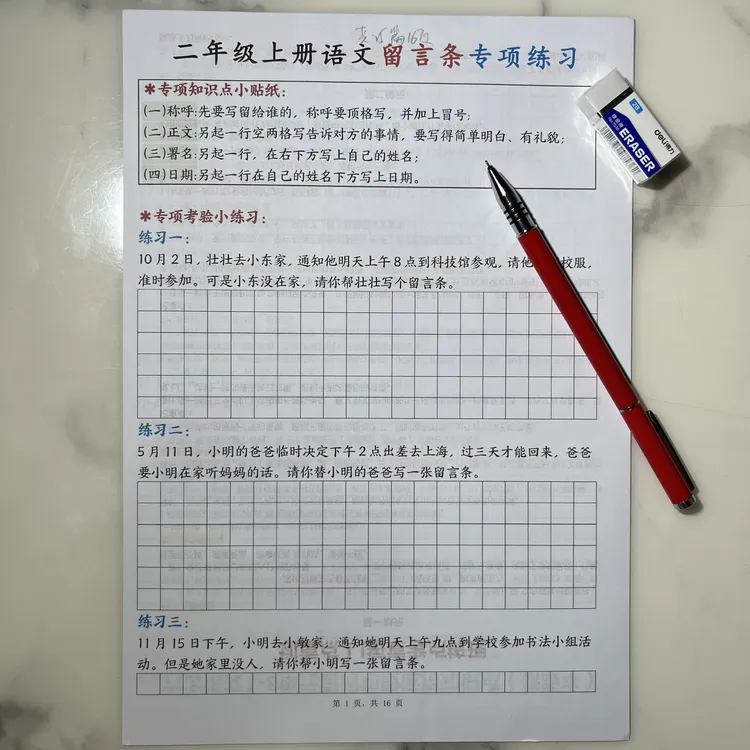 二年级上册语文留言条专项练习
*专项知识点小贴纸：
(一)称呼:先要写留给谁的，称呼要顶格写，并加上冒号;
(二)正文:另起一行空两格写告诉对方的事情，要写得简单明白、有礼貌;
(三)署名:另起一行，在右下方写上自己的姓名;
(四)日期:另起一行在自己的姓名下方写上日期。
*专项考验小练习：
练习一：
10月2日，壮壮去小东家，通知他明天上午8点到科技馆参观，请他 校服，
准时参加。可是小东没在家，请你帮壮壮写个留言条。
练习二：
5月11日，小明的爸爸临时决定下午2点出差去上海，过三天才能回来，爸爸
要小明在家听妈妈的话。请你替小明的爸爸写一张留言条。
练习三：
11月15日下午，小明去小敏家，通知她明天上午九点到学校参加书法小组活
动。但是她家里没人，请你帮小明写一张留言条。
第 1 页，共 16 页
deli得力
ERASER
2B